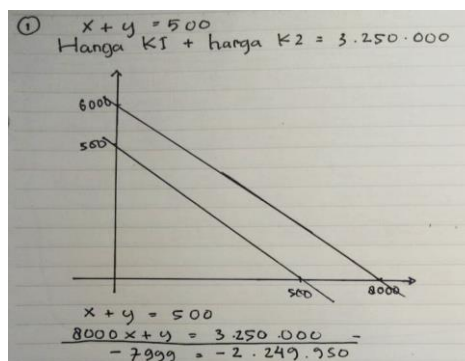 ① x + y = 500
Harga K1 + harga K2 = 3.250.000
6000
500
500 8000
x + y = 500
8000 x + y = 3.250.000 -
- 7999 = - 2.249.950